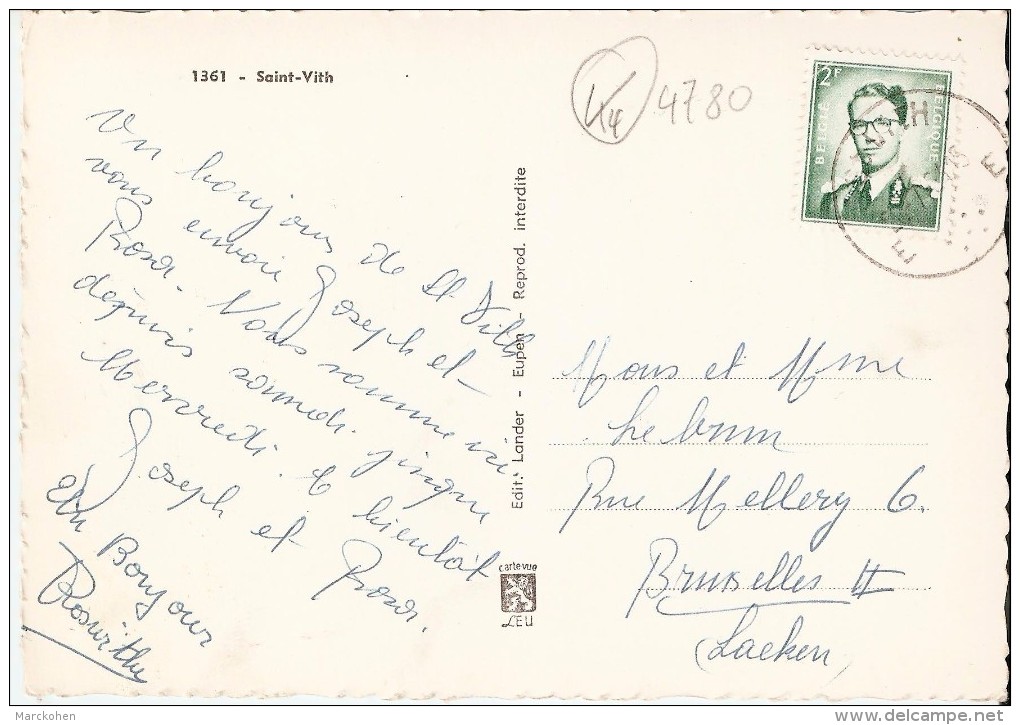 1361 - Saint-Vith
4780
2F
BELGIE
BELGIQUE
Un bonjour de St Vith
vous envoie Joseph et
Rosa. Nous sommes ici
depuis samedi jusque
Mercredi. A bientôt
Joseph et Rosa.
Un Bonjour
Edit. Lander - Eupen - Reprod. interdite
carte vue
LEU
Mons et Mme
Lebrun
Rue Mellery 6.
Bruxelles II
(Laeken)
Marckohen
delcampe.net